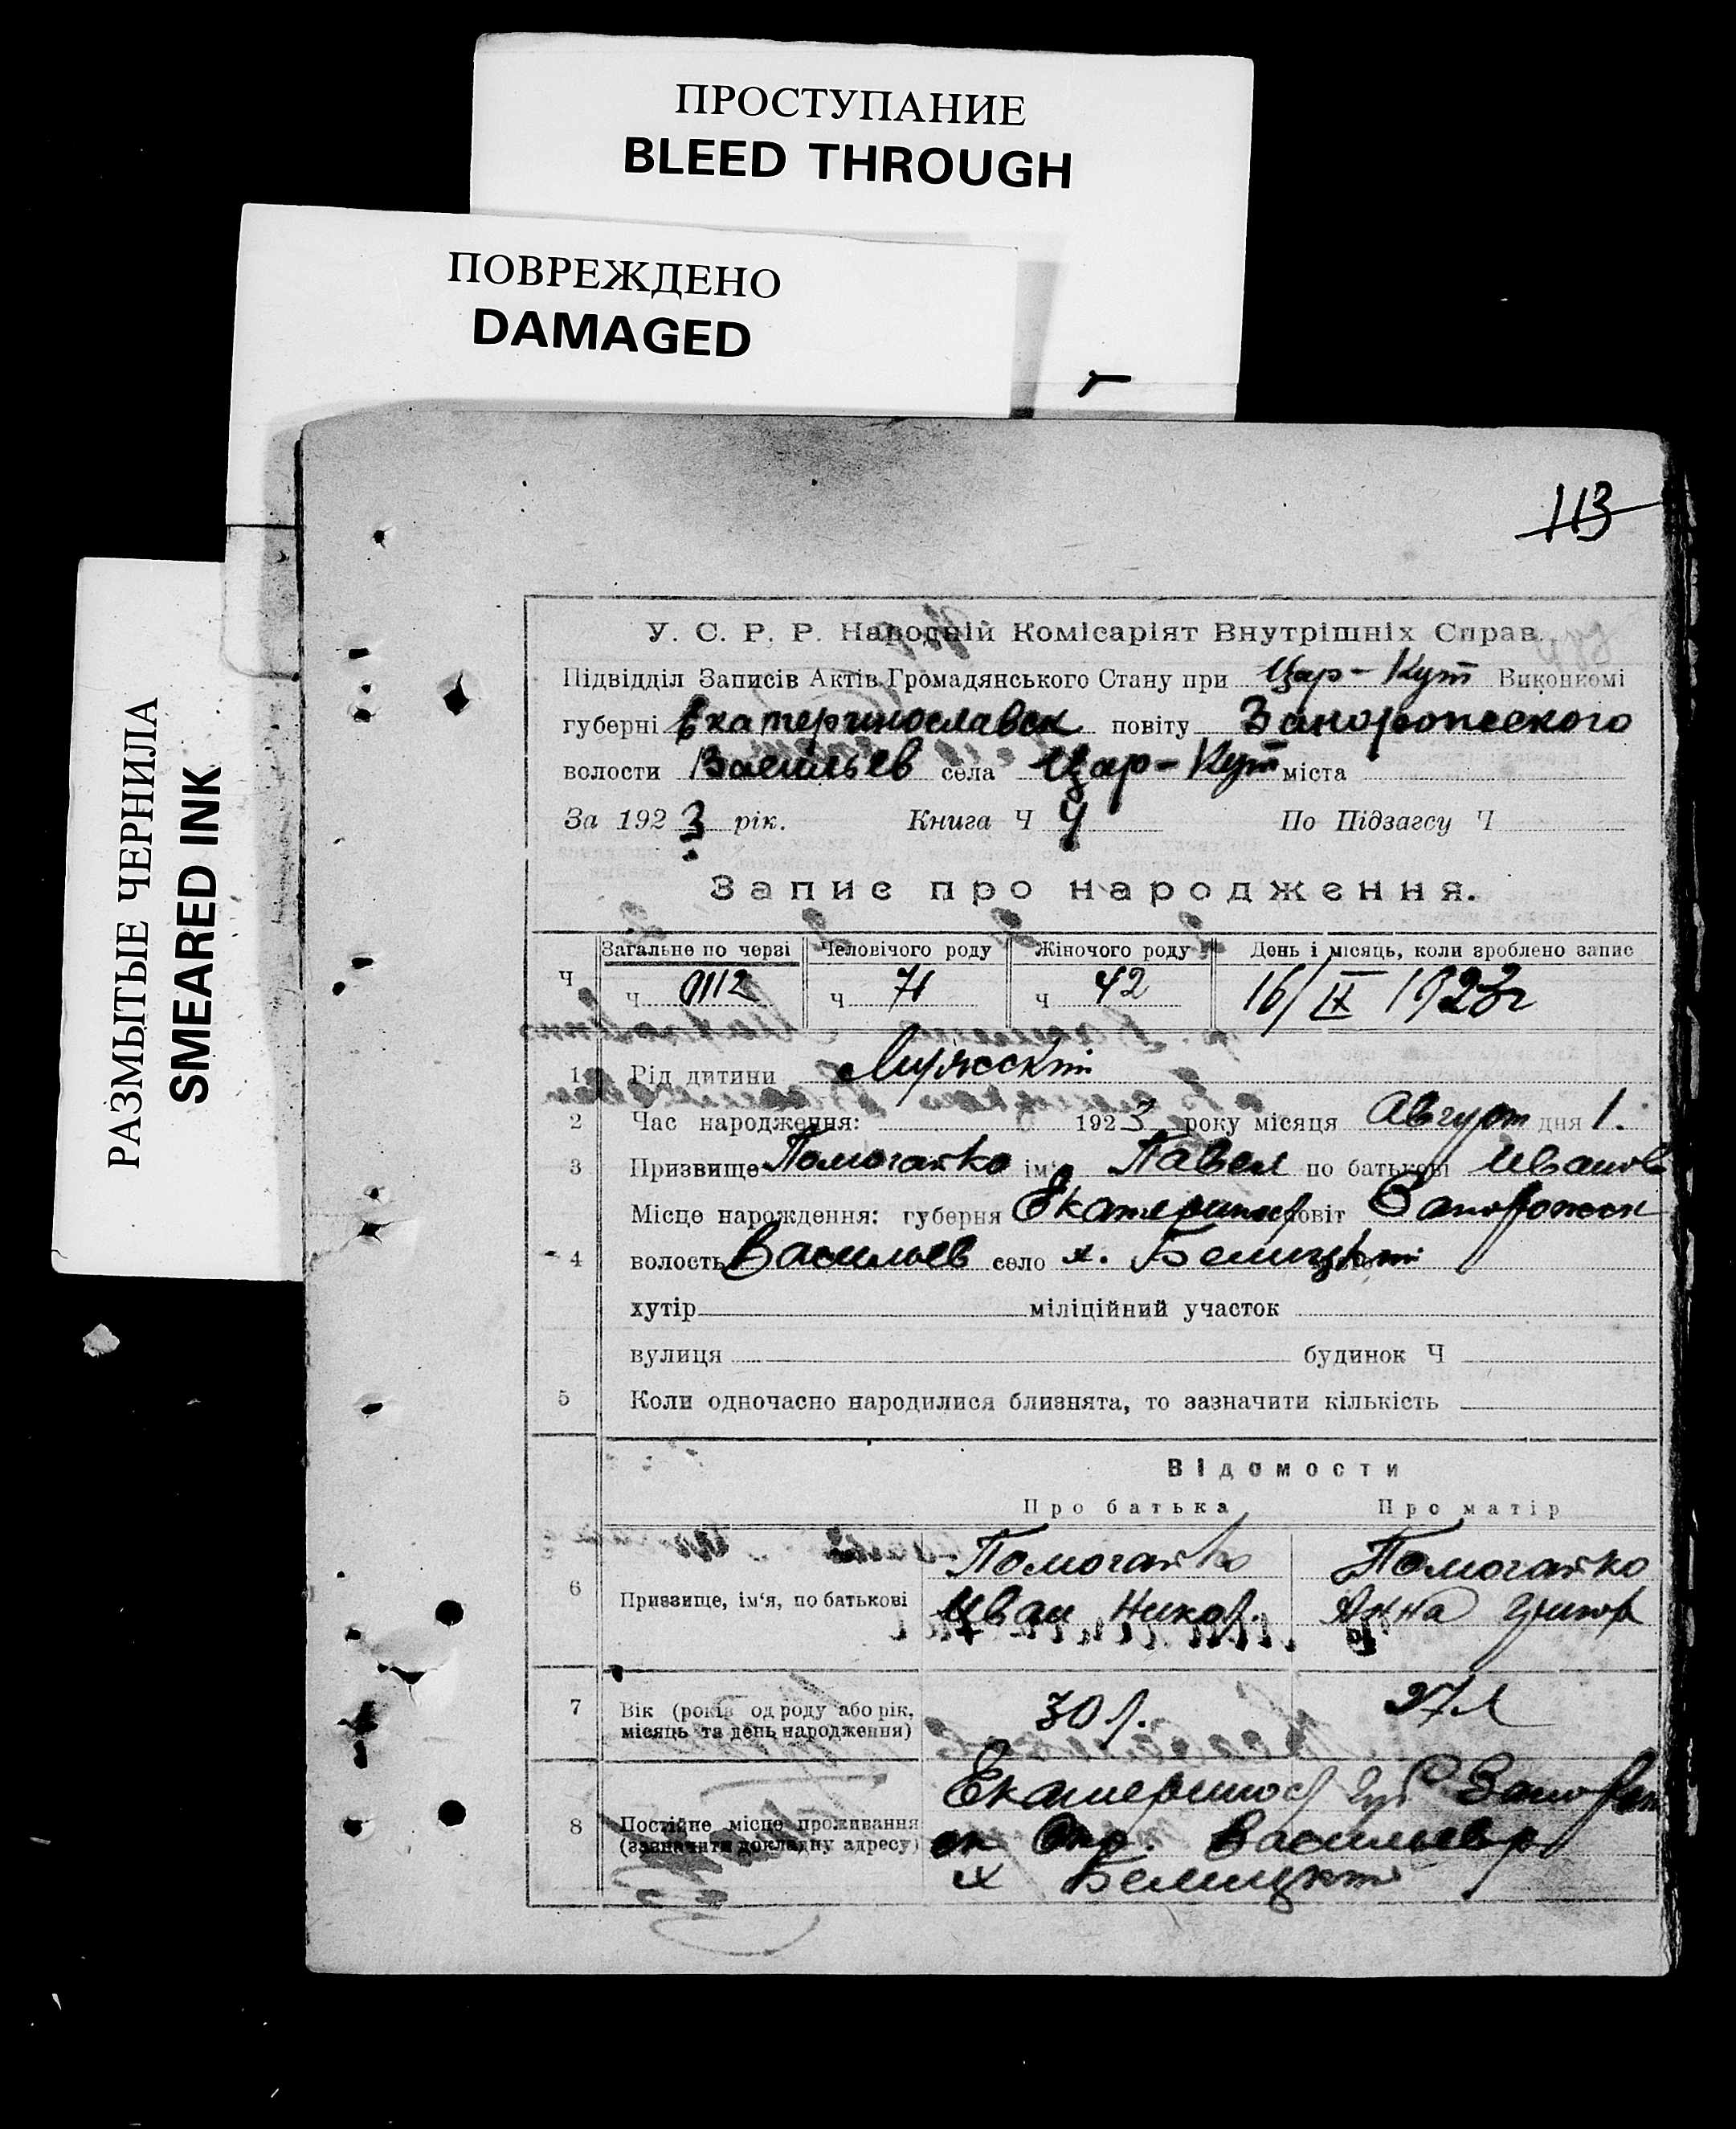 ПРОСТУПАНИЕ
BLEED THROUGH
ПОВРЕЖДЕНО
DAMAGED
РАЗМЫТЫЕ ЧЕРНИЛА
SMEARED INK
113
У. С. Р. Р. Народній Комісаріят Внутрішніх Справ.
Підвідділ Записів Актів Громадянського Стану при Цар-Кут Виконкомі
губерні Екатеринославск повіту Запорожского
волости Васильев села Цар-Кут міста
За 1923 рік. Книга Ч 4 По Підзагсу Ч
Запис про народження.
Загальне по черзі Человічого роду Жіночого роду День і місяць, коли зроблено запис
Ч ч 112 ч 71 ч 42 16/IX 1923г
1 Рід дитини Мужской
2 Час народження: 1923 року місяця Август дня 1.
3 Призвище Помогайко ім'я Павел по батькові Иванов
Місце нарождення: губерня Екатеринос повіт Запорожск
4 волость Васильев село х. Белицкий
хутір міліційний участок
вулиця будинок Ч
5 Коли одночасно народилися близнята, то зазначити кількість
Відомости
Про батька Про матір
6 Призвище, ім'я, по батькові Помогайко Иван Никол. Помогайко Анна Григор
7 Вік (років од роду або рік, місяць та день народження) 30 л. 27 л
8 Постійне місце проживання (зазначити докладну адресу) Екатеринос Губ Запорож
ск Окр. Васильев р
х Белицкий